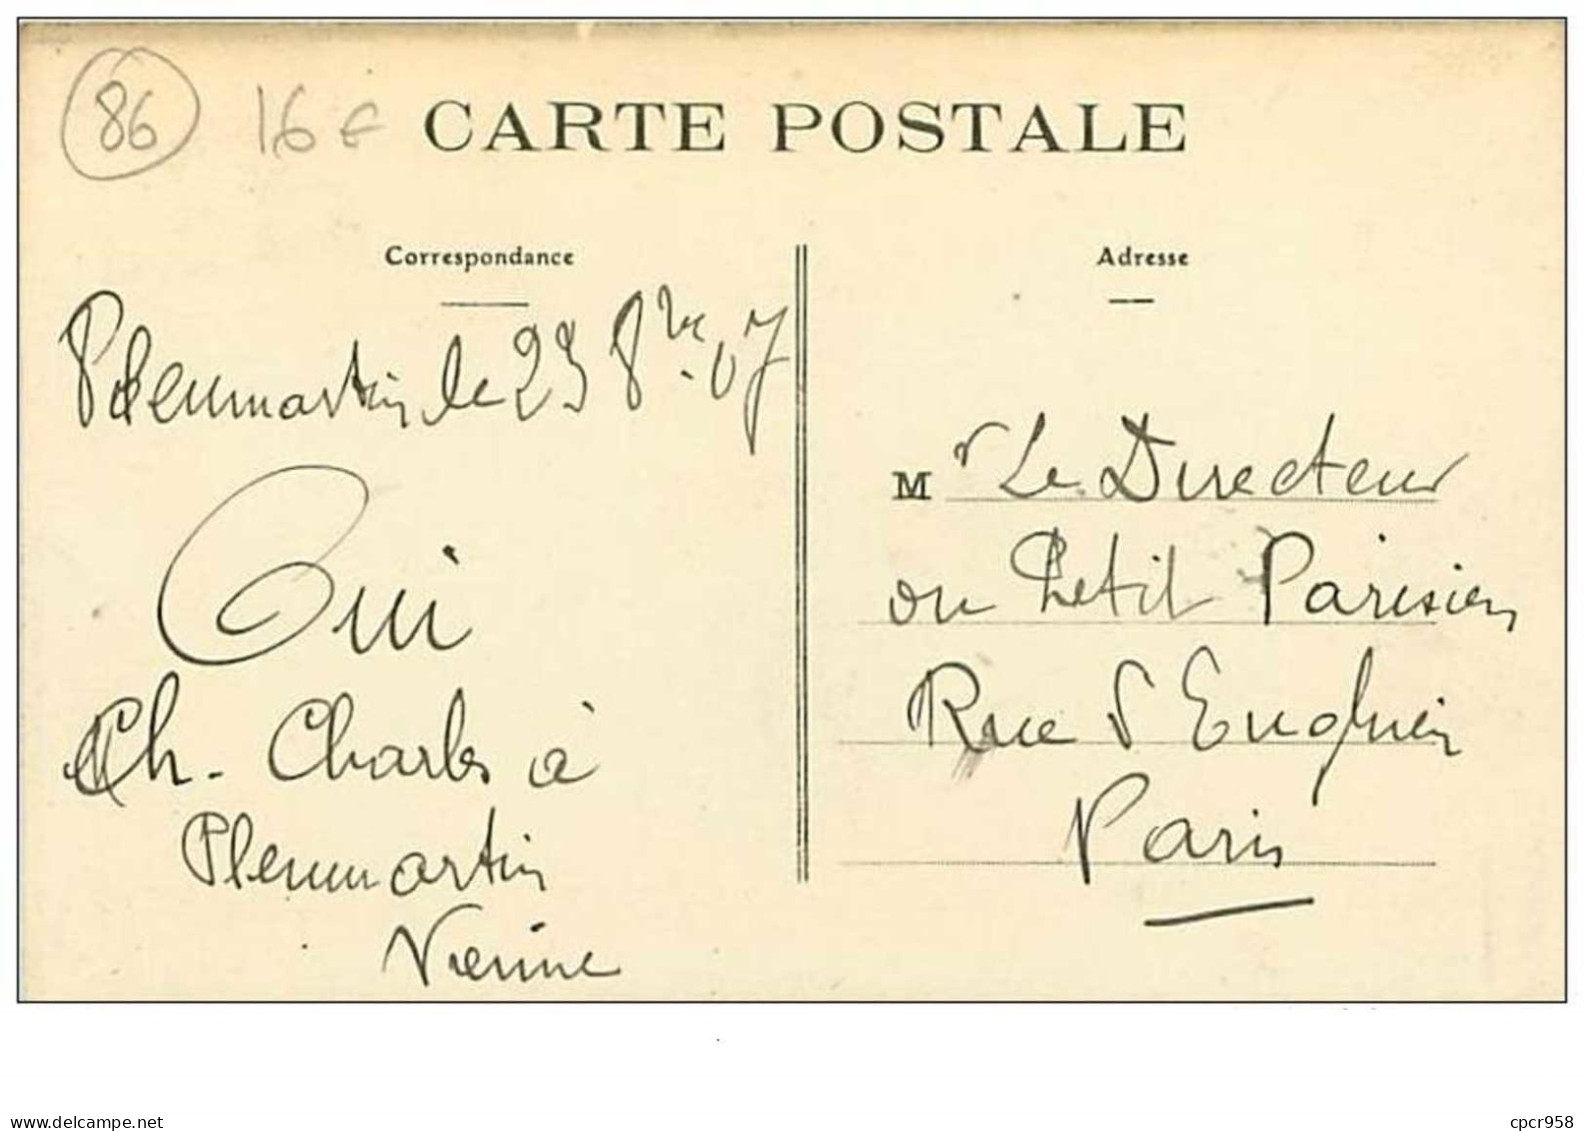 86 16 €
CARTE POSTALE
Correspondance
Pleumartin le 23 8bre 07
Oui
Ch. Charles à
Pleumartin
Vienne
Adresse
Mr Le Directeur
du Petit Parisien
Rue d'Enghien
Paris
www.delcampe.net
cpcr958